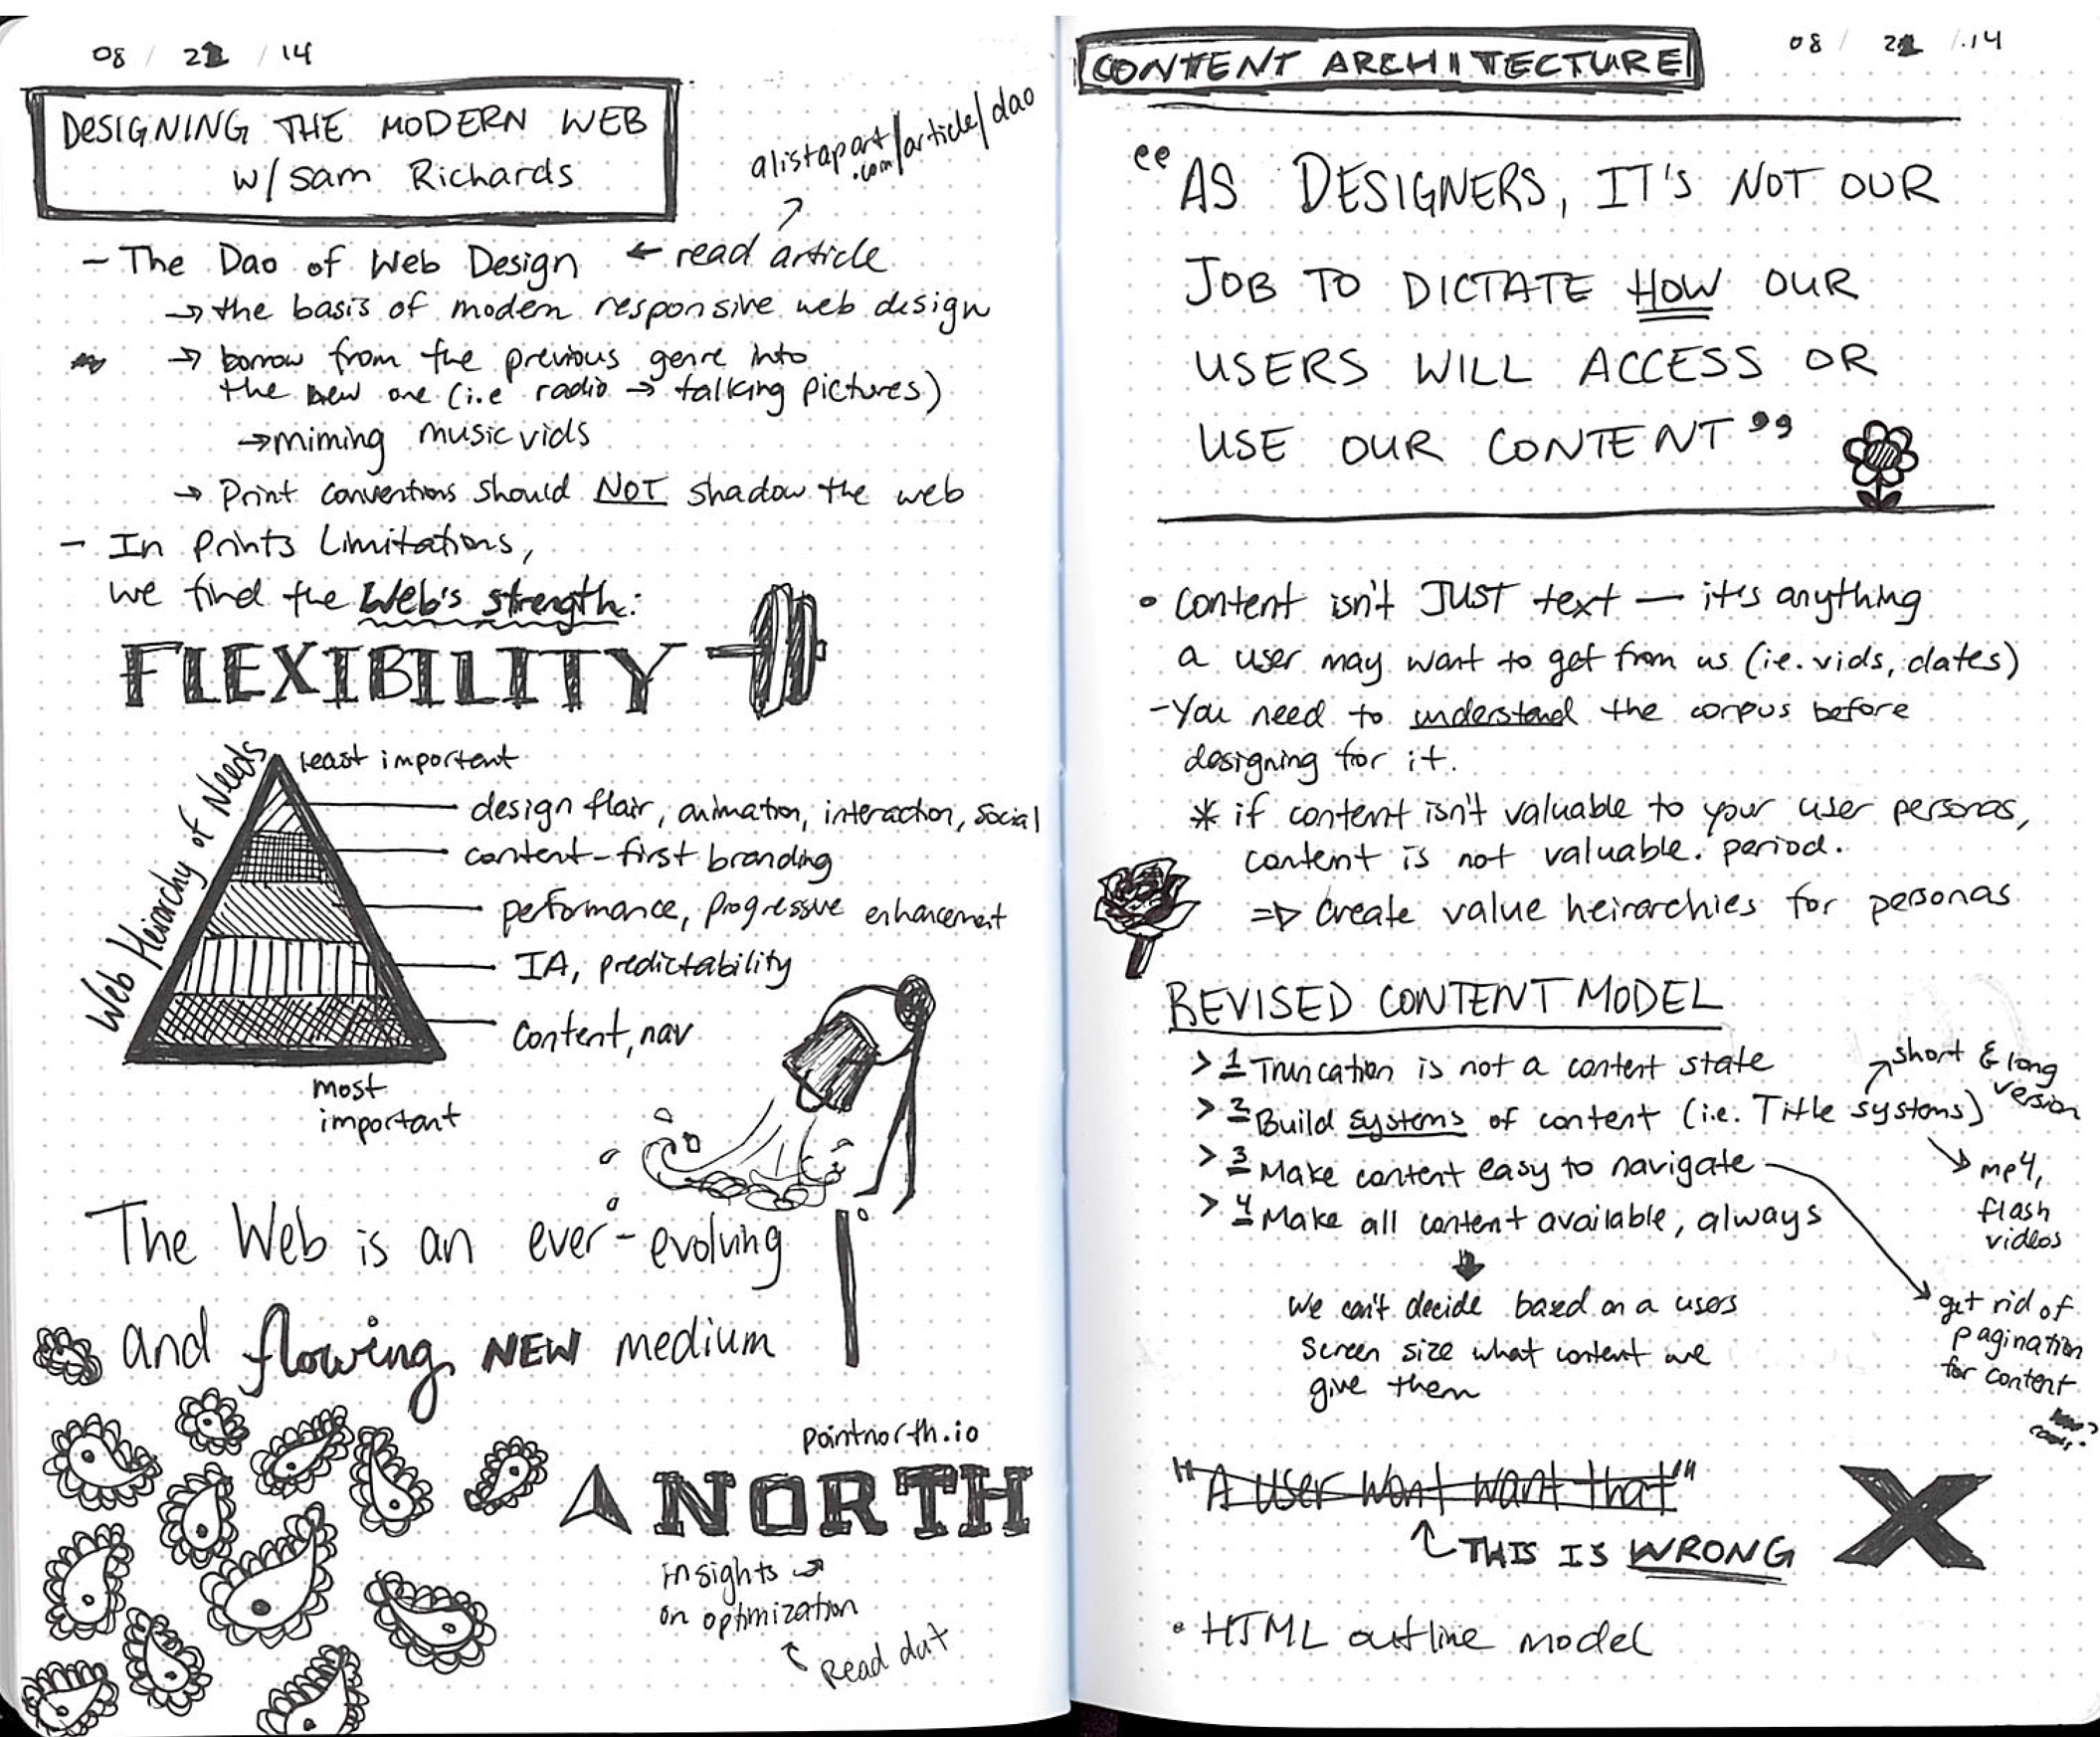 08 / 22 / 14
DESIGNING THE MODERN WEB
w/ Sam Richards
alistapart.com/article/dao
- The Dao of Web Design ← read article
→ the basis of modern responsive web design
→ borrow from the previous genre into
the new one (i.e radio → talking pictures)
→ miming music vids
→ Print conventions should NOT shadow the web
- In Prints Limitations,
we find the Web's strength:
FLEXIBILITY
Web Heirarchy of Needs
least important
design flair, animation, interaction, social
content-first branding
performance, progressive enhancement
IA, predictability
Content, nav
most
important
The Web is an ever-evolving
and flowing NEW medium
pointnorth.io
NORTH
insights →
on optimization
Read dat
CONTENT ARCHITECTURE
08 / 22 / 14
“AS DESIGNERS, IT'S NOT OUR
JOB TO DICTATE HOW OUR
USERS WILL ACCESS OR
USE OUR CONTENT”
• content isn't JUST text — it's anything
a user may want to get from us (ie. vids, dates)
- You need to understand the corpus before
designing for it.
* if content isn't valuable to your user personas,
content is not valuable. period.
⇒ Create value heirarchies for personas
REVISED CONTENT MODEL
> 1 Truncation is not a content state
> 2 Build systems of content (i.e. Title systems)
short & long
version
> 3 Make content easy to navigate
mp4,
flash
videos
> 4 Make all content available, always
We can't decide based on a users
screen size what content we
give them
get rid of
pagination
for content
"A user wont want that"
THIS IS WRONG
• HTML outline model